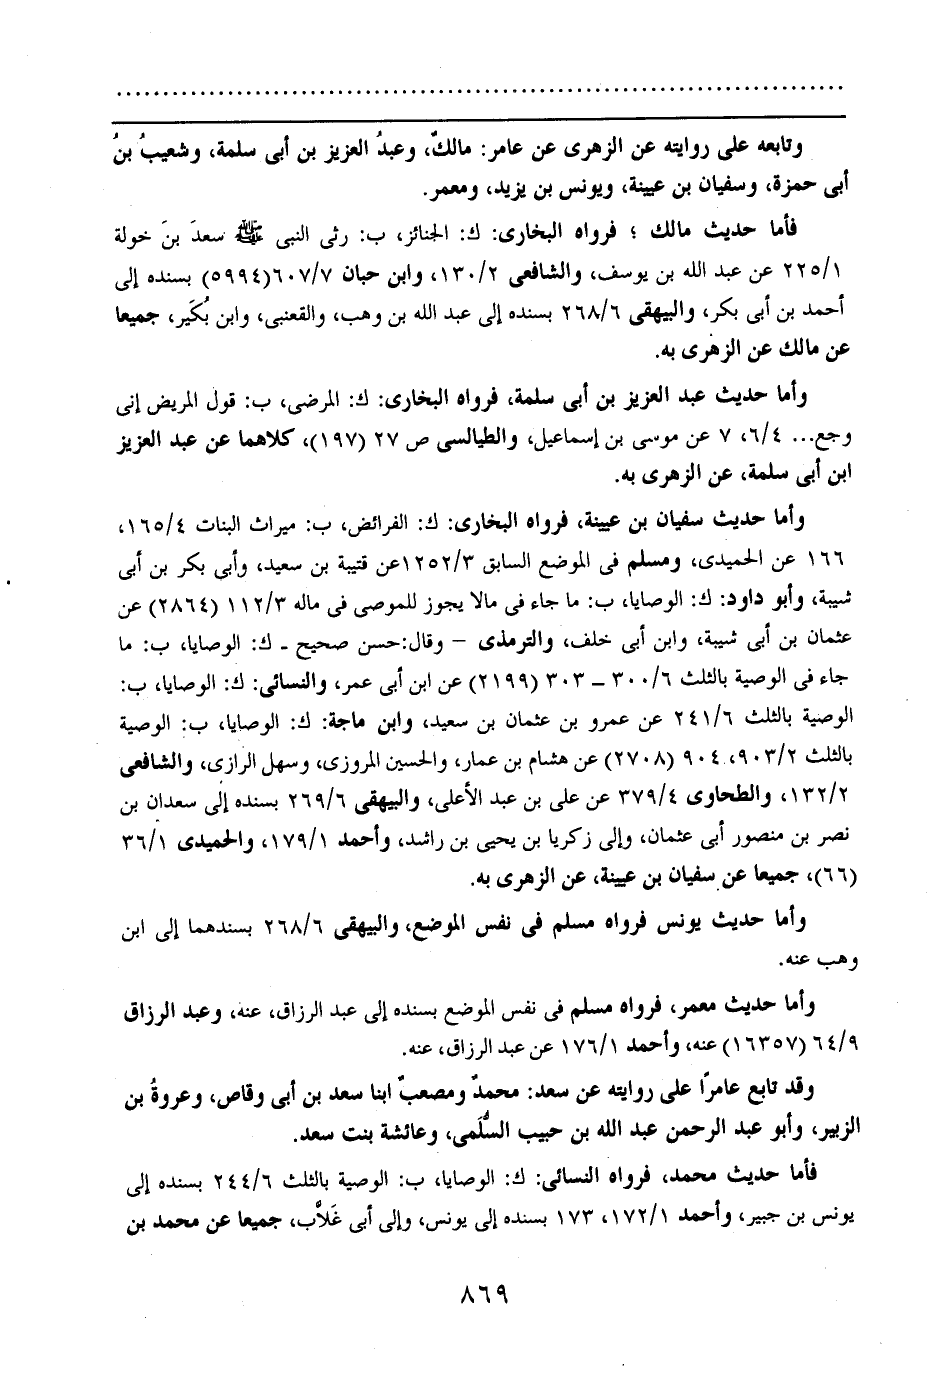 وتابعه على روايته عن الزهرى عن عامر: مالكٌ، وعبدُ العزيز بن أبى سلمة، وشعيبُ بنُ
أبى حمزة، وسفيان بن عيينة، ويونس بن يزيد، ومعمر.
فأما حديث مالك ؛ فرواه البخارى: ك: الجنائز، ب: رثى النبى ﷺ سعدَ بنَ خولة
٢٢٥/١ عن عبد الله بن يوسف، والشافعى ١٣٠/٢، وابن حبان ٦٠٧/٧(٥٩٩٤) بسنده إلى
أحمد بن أبى بكر، والبيهقى ٢٦٨/٦ بسنده إلى عبد الله بن وهب، والقعنبى، وابن بُكَير، جميعا
عن مالك عن الزهرى به.
وأما حديث عبد العزيز بن أبى سلمة، فرواه البخارى: ك: المرضى، ب: قول المريض إنى
وجع... ٦/٤، ٧ عن موسى بن إسماعيل، والطيالسى ص ٢٧ (١٩٧)، كلاهما عن عبد العزيز
ابن أبى سلمة، عن الزهرى به.
وأما حديث سفيان بن عيينة، فرواه البخارى: ك: الفرائض، ب: ميراث البنات ١٦٥/٤،
١٦٦ عن الحميدى، ومسلم فى الموضع السابق ١٢٥٢/٣عن قتيبة بن سعيد، وأبي بكر بن أبى
شيبة، وأبو داود: ك: الوصايا، ب: ما جاء فى مالا يجوز للموصى فى ماله ١١٢/٣ (٢٨٦٤) عن
عثمان بن أبى شيبة، وابن أبى خلف، والترمذى – وقال:حسن صحيح ـ ك: الوصايا، ب: ما
جاء فى الوصية بالثلث ٣٠٠/٦ – ٣٠٣ (٢١٩٩) عن ابن أبى عمر، والنسائى: ك: الوصايا، ب:
الوصية بالثلث ٢٤١/٦ عن عمرو بن عثمان بن سعيد، وابن ماجة: ك: الوصايا، ب: الوصية
بالثلث ٩٠٣/٢، ٩٠٤ (٢٧٠٨) عن هشام بن عمار، والحسين المروزى، وسهل الرازى، والشافعى
١٣٢/٢، والطحاوى ٣٧٩/٤ عن على بن عبد الأعلى، والبيهقى ٢٦٩/٦ بسنده إلى سعدان بن
نصر بن منصور أبى عثمان، وإلى زكريا بن يحيى بن راشد، وأحمد ١٧٩/١، والحميدى ٣٦/١
(٦٦)، جميعا عن سفيان بن عيينة، عن الزهرى به.
وأما حديث يونس فرواه مسلم فى نفس الموضع، والبيهقى ٢٦٨/٦ بسندهما إلى ابن
وهب عنه.
وأما حديث معمر، فرواه مسلم فى نفس الموضع بسنده إلى عبد الرزاق، عنه، وعبد الرزاق
٦٤/٩ (١٦٣٥٧) عنه، وأحمد ١٧٦/١ عن عبد الرزاق، عنه.
وقد تابع عامرًا على روايته عن سعد: محمدٌ ومصعبٌ ابنا سعد بن أبى وقاص، وعروةُ بن
الزبير، وأبو عبد الرحمن عبد الله بن حبيب السُّلَمى، وعائشة بنت سعد.
فأما حديث محمد، فرواه النسائى: ك: الوصايا، ب: الوصية بالثلث ٢٤٤/٦ بسنده إلى
يونس بن جبير، وأحمد ١٧٢/١، ١٧٣ بسنده إلى يونس، وإلى أبى غَلاَّب، جميعا عن محمد بن
٨٦٩